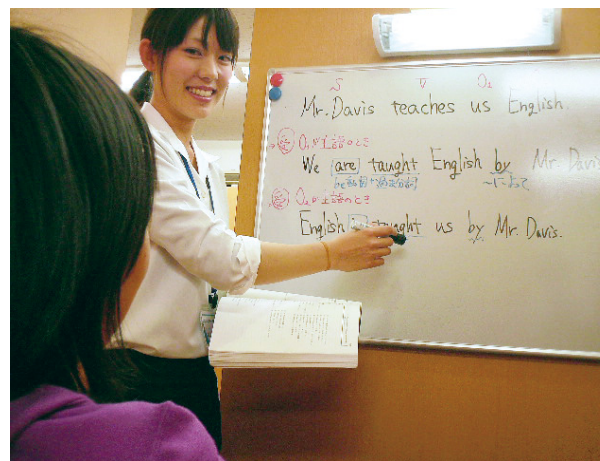 S V O₂
Mr. Davis teaches us English.
O₁が主語のとき
We are taught English by Mr. Davis
be動詞+過去分詞 ~によって
O₂が主語のとき
English taught us by Mr. Davis.